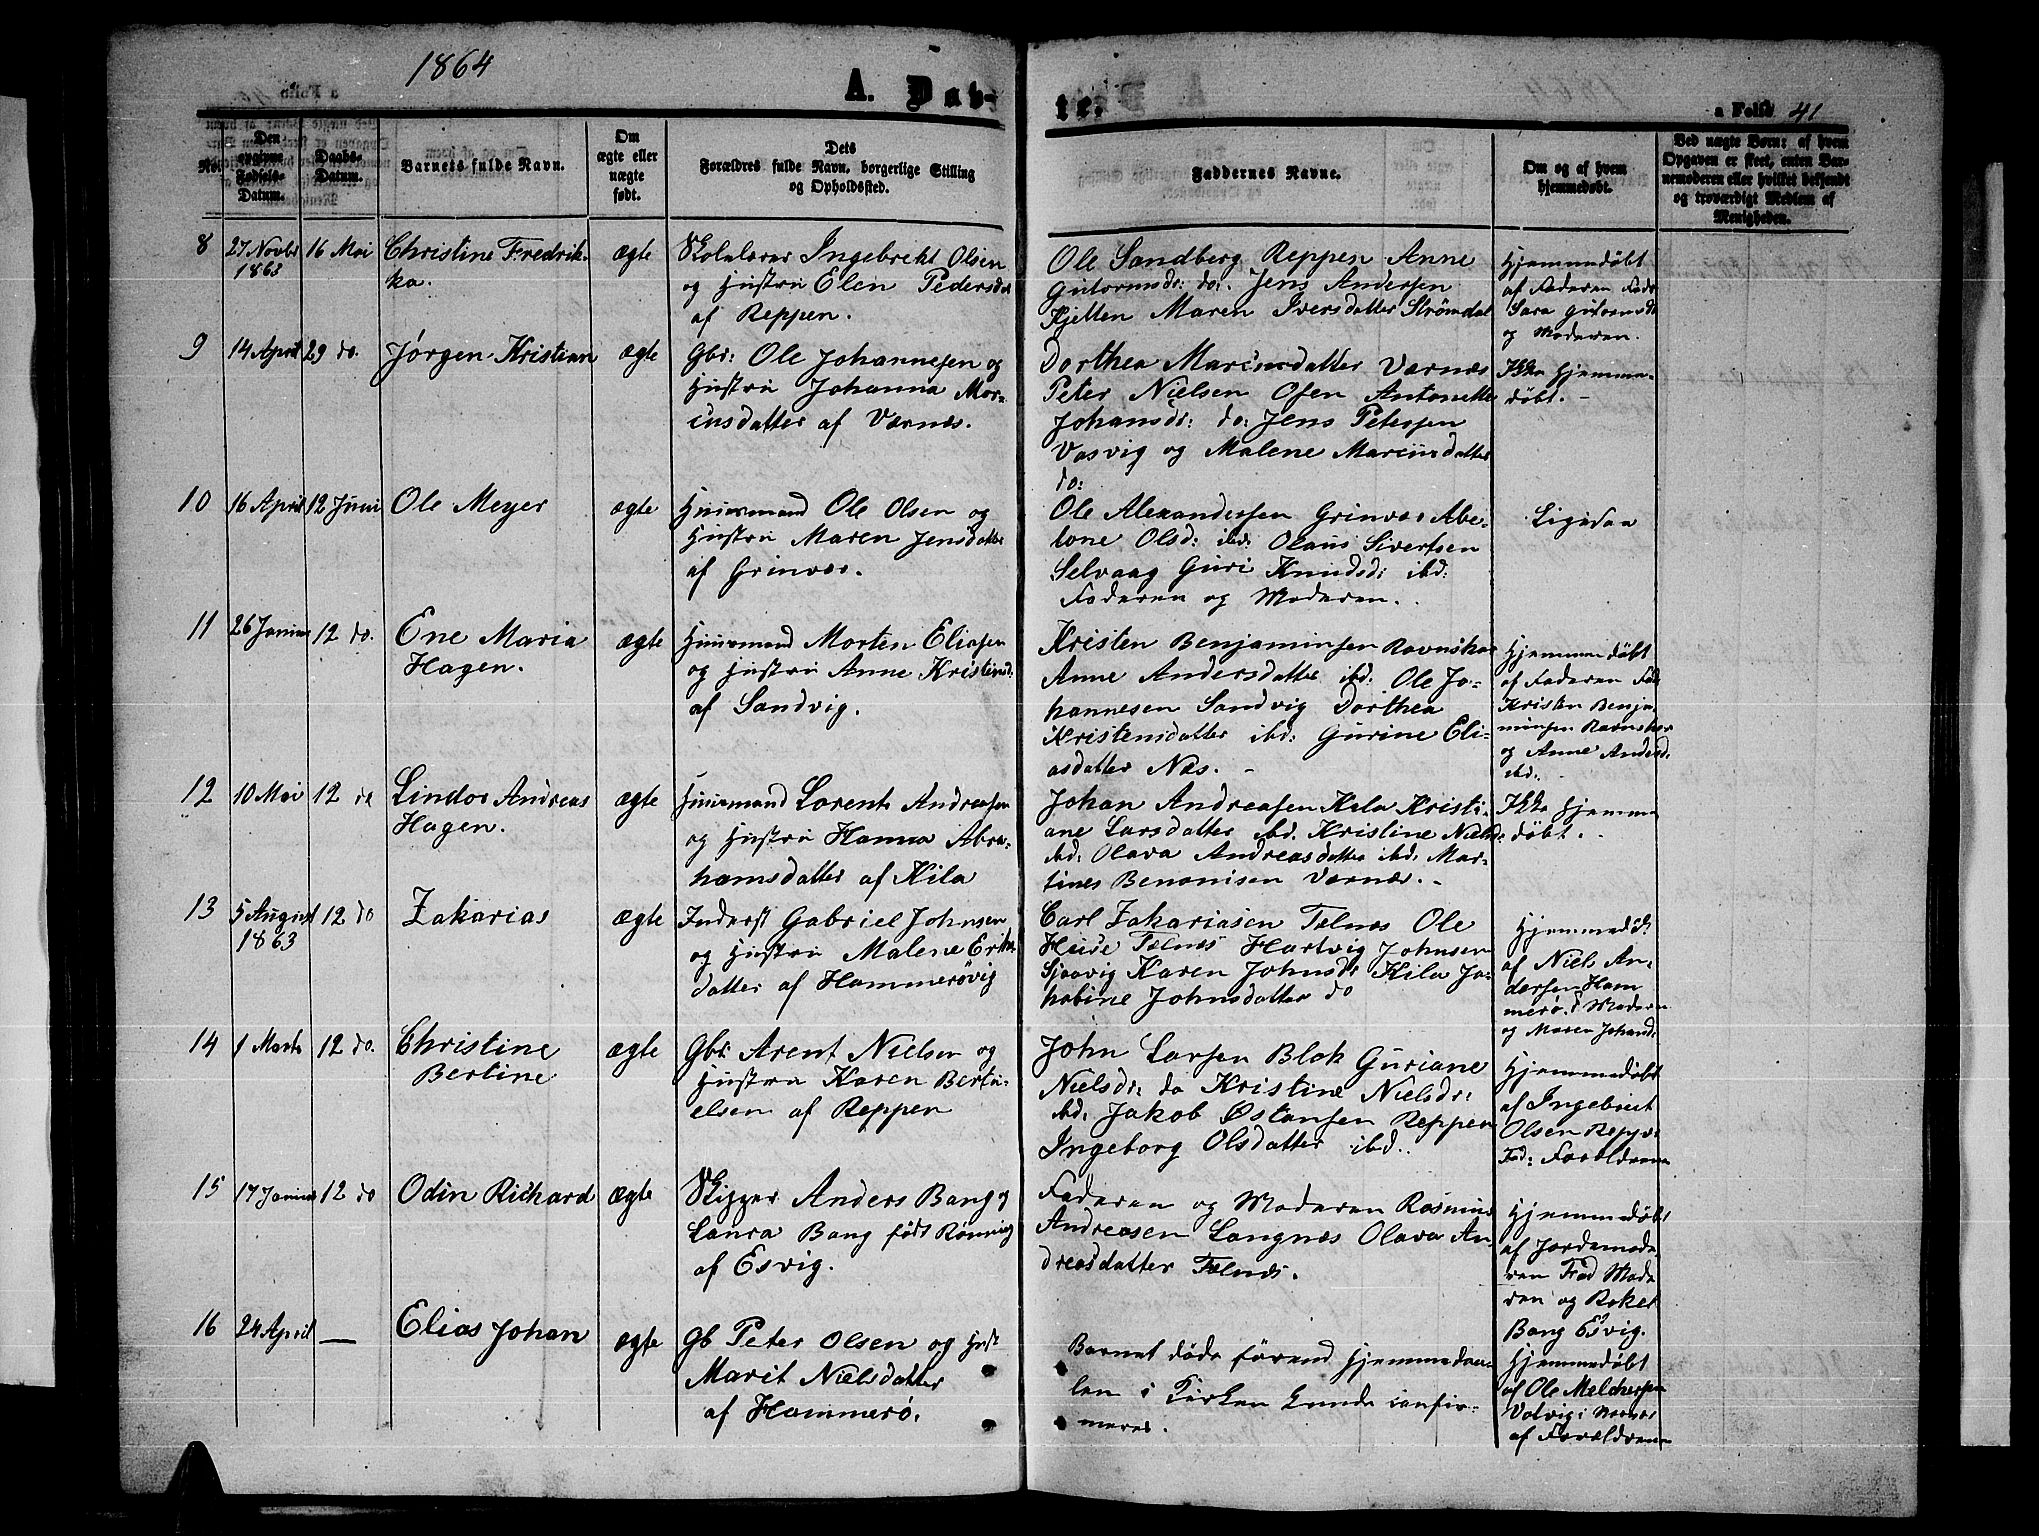 1864
A. Dab-
te.
a Folio 41
No.
Den
opgivne
Fødsels-
Datum.
Daabs-
Datum.
Barnets fulde Navn.
Om
ægte eller
uægte
født.
Dets
Forældres fulde Navn, borgerlige Stilling
og Opholdssted.
Faddernes Navne.
Om og af hvem
hjemmedøbt.
Ved uægte Børn: af hvem
Opgaven er skeet, enten Bar-
nemoderen eller hvilket bekjendt
og troværdigt Medlem af
Menigheden.
8
27 Novbr
1863
16 Mai
Christine Fredrik-
ka.
ægte
Skolelærer Ingebreht Olsen
og Hustru Elen Pedersdr
af Reppen.
Ole Sandberg Reppen Anne
Gutormsdr: do: Jens Andersen
Kjelten Maren Iversdatter Strømdal
Hjemmedøbt
af Faderen Fadr
Sara Gutormsdr
og Moderen.
9
14 April
29 do.
Jørgen Kristian
ægte
Gbr: Ole Johannesen og
Hustru Johanna Mar-
cusdatter af Værnæs.
Dorthea Marcusdatter Værnæs
Peter Nielsen Ofen Antonette
Johansdr: do: Jens Petersen
Vasvig og Malene Marcusdatter
do:
Ikke Hjemme-
døbt. -
10
16 April
12 Juni
Ole Meyer
ægte
Huusmand Ole Olsen og
Hustru Maren Jensdatter
af Grinvær.
Ole Alexandersen Grinvær Abe-
lone Olsd: ibd: Olaus Sivertsen
Selvaag Guri Knudsd: ibd:
Faderen og Moderen.
Ligedan
11
26 Januar
12 do.
Ene Maria
Hagen.
ægte
Huusmand Morten Eliasen
og Hustru Anne Kristensd:
af Sandvig.
Kristen Benjaminsen Ravnskar
Anne Andersdatter ibd: Ole Jo-
hannesen Sandvig Dorthea
Kristensdatter ibd: Gurine Eli-
asdatter Næs. -
Hjemmedøbt
af Faderen Fadr
Kristen Benja-
minsen Ravnskar
og Anne Andersd:
ibd:
12
10 Mai
12 do
Lindor Andreas
Hagen.
ægte
Huusmand Lorents Andreasen
og Hustru Hanna Abra-
hamsdatter af Kila
Johan Andreasen Kila Kristi-
ane Larsdatter ibd. Kristine Nielsdr:
ibd: Olava Andreasdatter ibd: Mar-
tines Benonisen Værnæs. -
Ikke Hjemme
døbt. -
13
5 August
1863
12 do
Zakarias
ægte
Inderst Gabriel Johnsen
og Hustru Malene Eriks
datter af Hammerövig
Carl Zakariasen Tælnæs Ole
Heide Tælnæs Hartvig Johnsen
Sjaavig Karen Johnsdr Kila Ja-
kobine Johnsdatter do
Hjemmedbt
af Niels An-
dersen Ham
merø. F. Moderen
og Maren Johand:
14
1 Marts
12 do.
Christine
Bertine
ægte
Gbr. Arent Nielsen og
Hustru Karen Berta-
elsen af Reppen
John Larsen Blok Guriane
Nielsdr: do Kristine Nielsdr:
ibd: Jakob Østensen Reppen
Ingeborg Olsdatter ibd.
Hjemmedøbt
af Ingebriet
Olsen Reppe.
Fad: Forældrene
15
17 Januar
12 do
Odin Richard
ægte
Skipper Anders Bang og
Laura Bang født Rönning
af Esvig.
Faderen og Moderen Rasmus
Andreasen Langnæs Olava An-
dreasdatter Tælnæs.
Hjemmedøbt
af Jordemode-
ren Fad Mode
ren og Roket
Bang Esvig.
16
24 April
—
Elias Johan
ægte
Gb Peter Olsen og Hust
Marit Nielsdatter
af Hammerø.
Barnet døde førend Hjemmedaa-
ben i Kirken kunde confir-
meres.
Hjemmedøbt
af Ole Melchersen
Valvig i Nærvær
af Forældrene